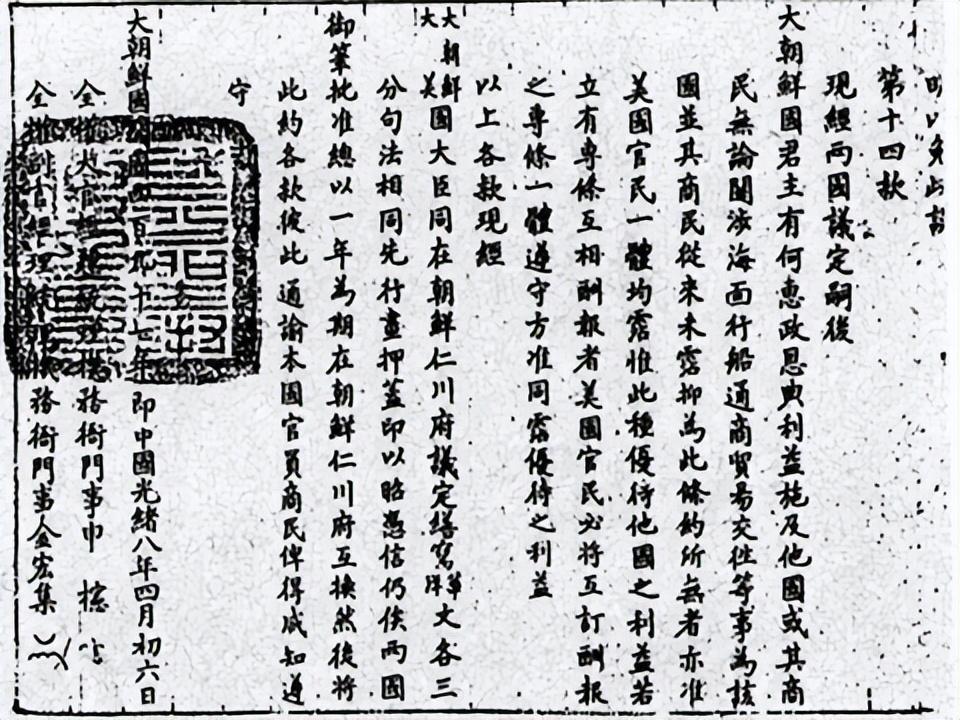 第十四款
現經兩國議定嗣後
大朝鮮國君主有何惠政恩典利益施及他國或其商
民無論關涉海面行船通商貿易交往等事為該
國並其商民從來未霑抑為此條約所無者亦准
美國官民一體均霑惟此種優待他國之利益若
立有專條互相酬報者美國官民必將互訂酬報
之專條一體遵守方准同霑優待之利益
以上各款現經
大朝鮮大美國大臣同在朝鮮仁川府議定繕寫華洋文各三
分句法相同先行畫押蓋印以昭憑信仍俟兩國
御筆批准總以一年為期在朝鮮仁川府互換然後將
此約各款彼此通諭本國官員商民俾得咸知遵
守
大朝鮮國開國四百九十一年即中國光緒八年四月初六日
全權大官經理統理機務衙門事申
全權副官經理統理機務衙門事金宏集